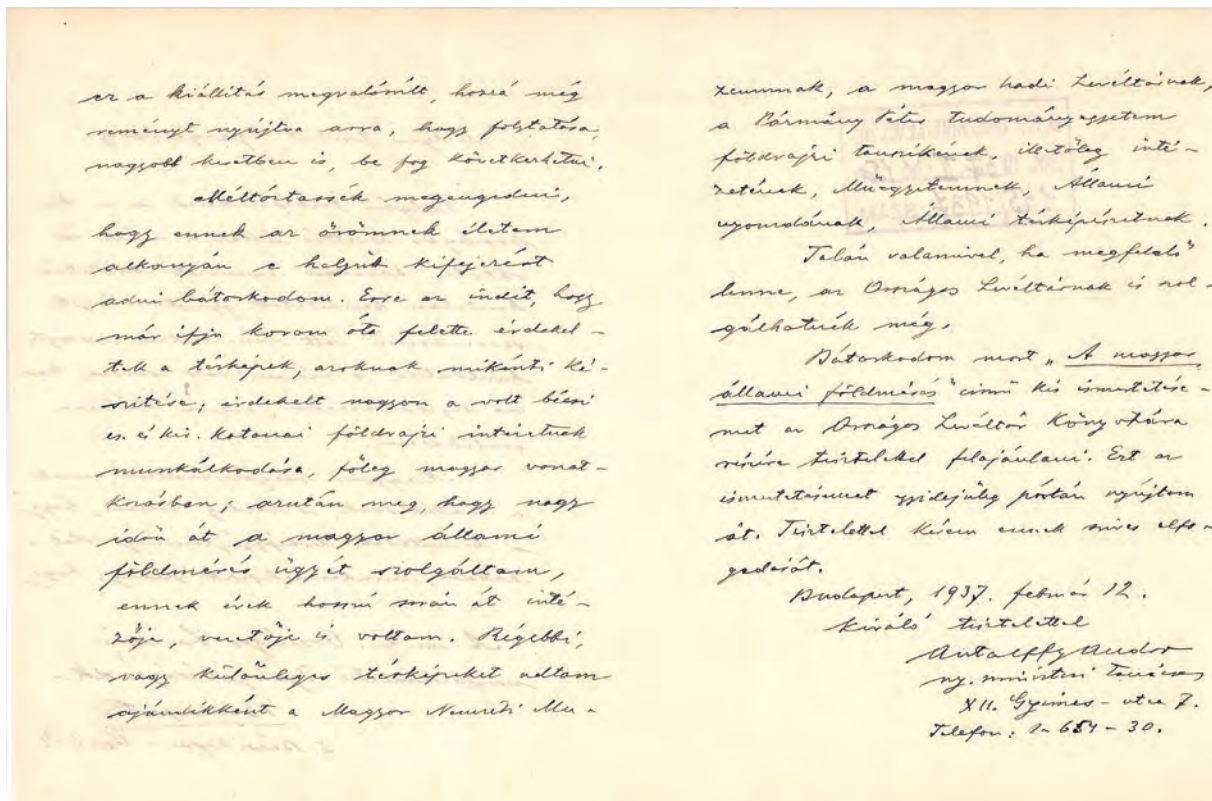 ez a kiállítás megvalósult, hozzá még
reményt nyújtva arra, hogy folytatása,
nagyobb keretben is, be fog következhetni.
Méltóztassék megengedni,
hogy ennek az örömnek életem
alkonyán e helyütt kifejezést
adni bátorkodom. Erre az indít, hogy
már ifju korom óta felette érdekel-
tek a térképek, azoknak mikénti ké-
szitése; érdekelt nagyon a volt bécsi
cs. és kir. Katonai földrajzi intézetnek
munkálkodása, főleg magyar vonat-
kozásban; azután meg, hogy nagy
időn át a magyar állami
földmérés ügyét szolgáltam,
ennek évek hosszú során át inté-
zője, vezetője is voltam. Régebbi,
vagy különleges térképeket adtam
ajándékként a Magyar Nemzeti Mu-
zeumnak, a magyar hadi Levéltárnak,
a Pázmány Péter tudományegyetem
földrajzi tanszékének, illetőleg inté-
zetének, Műegyetemnek, Állami
nyomdának, Állami térképészetnek.
Talán valamivel, ha megfelelő
lenne, az Országos Levéltárnak is szol-
gálhatnék még.
Bátorkodom most „A magyar
állami földmérés" című kis ismertetése-
met az Országos Levéltár Könyvtára
részére tisztelettel felajánlani. Ezt az
ismertetésemet egyidejűleg postán nyújtom
át. Tisztelettel kérem ennek szives elfo-
gadását.
Budapest, 1937. február 12.
Kiváló tisztelettel
Antalffy Andor
ny. miniszteri tanácsos
XII. Gyimes-utca 7.
Telefon: 1-654-30.